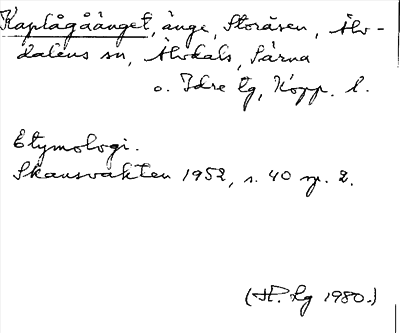 Kaplågåänget, änge, Storåsen, Älv-
dalens sn, Älvdals, Särna
o. Idre tg, Kopp. l.
Etymologi.
Skansvakten 1952, s. 40 sp. 2.
(H. Lg 1980.)